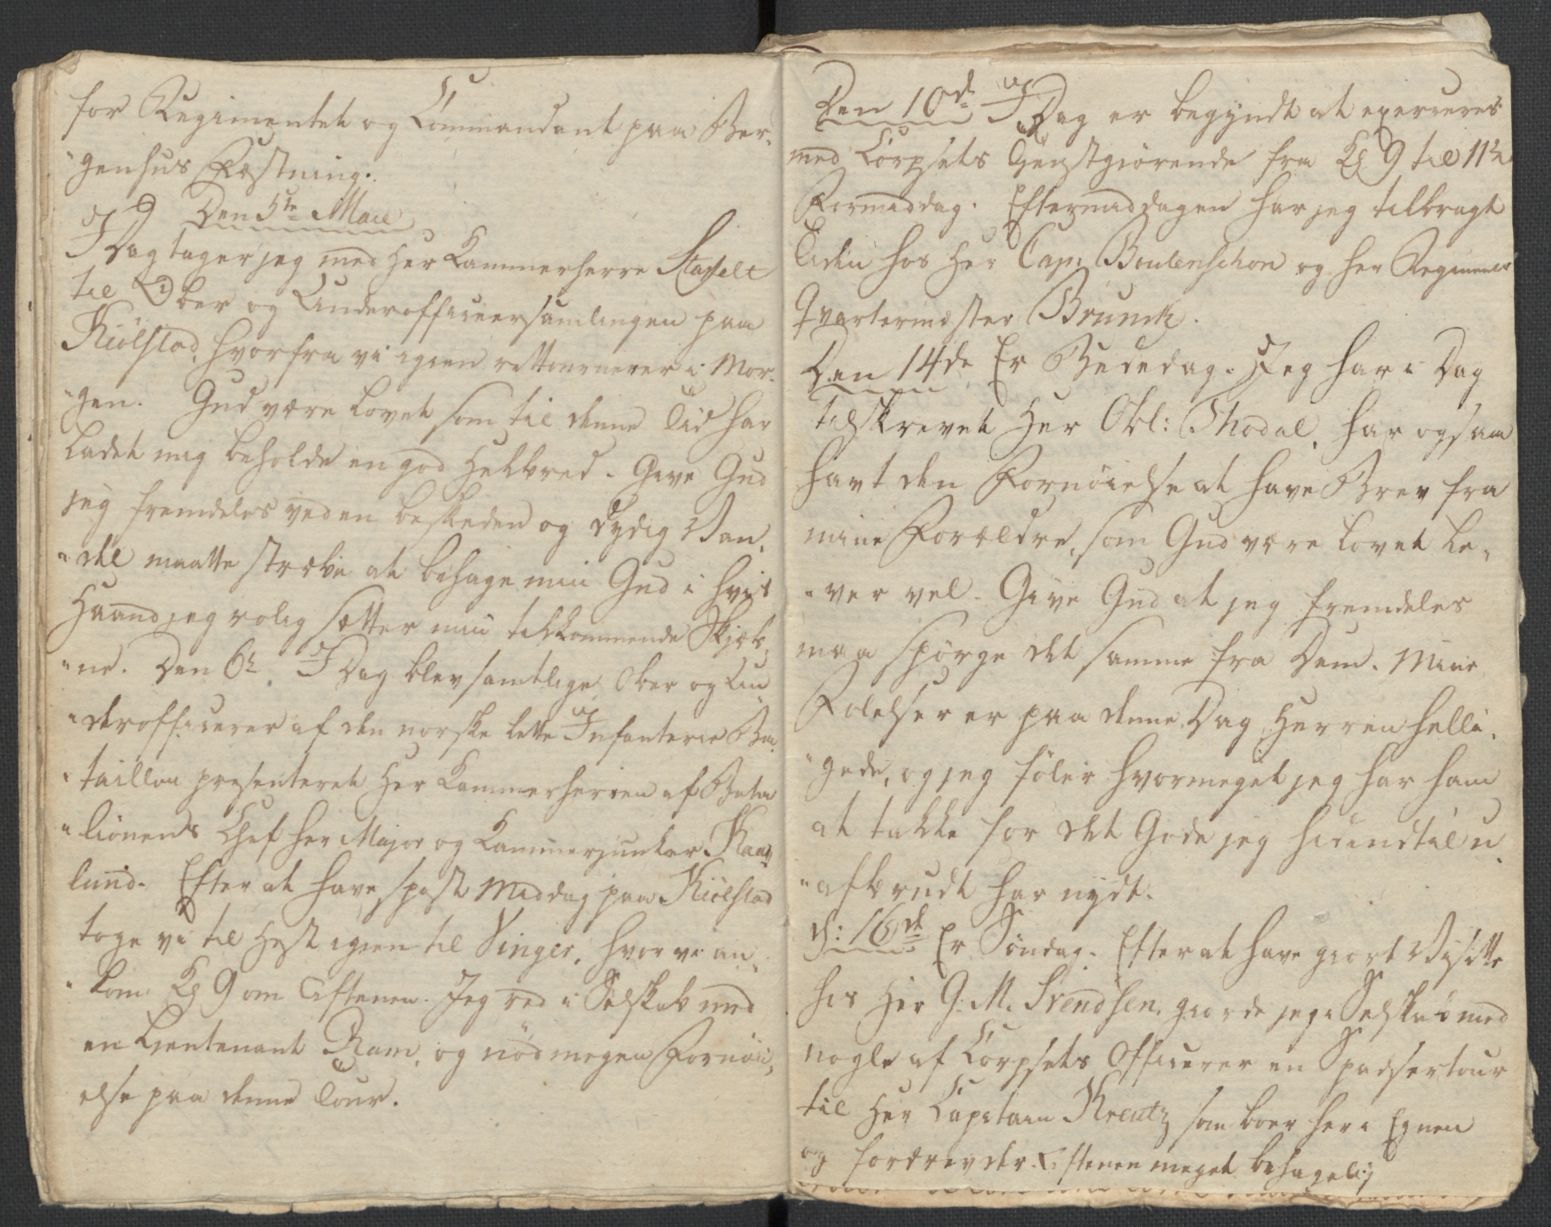 for Regimentet og Commandant paa Ber-
"genhus Fæstning.
Den 5te Maii
I Dag tager jeg med Her Kammerherre Staffelt
til Ober og Underofficeersamlingen paa
Kiölstad, hvorfra vi igien rettournerer i Mor-
"gen. Gud være lovet som til denne Tid har
ladet mig beholde en god Helbred. Give Gud
jeg fremdeles ved en beskeden og dydig Van-
"del maatte stræbe at behage min Gud i hvis
Haand jeg rolig sætter min tilkommende Skjæb-
"ne. Den 6te I Dag blev samtlige Ober og Un
"derofficerer af den norske lette Infanterie Ba-
"taillon presenteret Her Kammerherren af Batai
"lionens Chef Her Major og Kammerjunker Kaas
lund. Efter at have spiist Middag paa Kiölstad
toge vi til Hest igien til Vinger, hvor vi an-
"kom Kl 9 om Aftenen. Jeg red i Selskab med
en Lieutenant Ram, og nöd megen Fornöi-
else paa denne Tour.
Den 10de I Dag er begyndt at exerceres
med Corpsets Gevæstgiörende fra Kl 9 til 11½
Formiddag. Eftermiddagen har jeg tilbragt
Tiden hos Her Cap: Beutenschon og Her Regiments
Qvartermester Brunck.
Den 14de Er Bededag. Jeg har i Dag
tilskrevet Her Obl: Thodal, har ogsaa
havt den Fornöielse at have Brev fra
mine Forældre, som Gud være lovet le-
"ver vel. Give Gud at jeg fremdeles
maa spörge det samme fra Dem. Mine
Følelser er paa denne Dag Herren helli-
"gede, og jeg föler hvormeget jeg har ham
at takke for det Gode jeg hidindtil u-
"afbrudt har nydt.
d: 16de Er Söndag. Efter at have giort Visitte
hos Her G. M. Svendsen, giorde jeg i Selskab med
nogle af Corpsets Officerer en Spadsertour
til Her Capitain Kreutz som boer her i Egnen
og fordrev der Aftenen meget behagelig